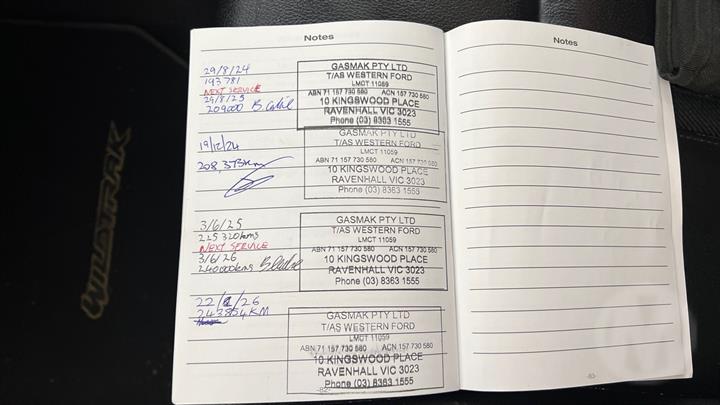 Notes
29/8/24
193781
NEXT SERVICE
29/8/25
209000
GASMAK PTY LTD
T/AS WESTERN FORD
LMCT 11059
ABN 71 157 730 580 ACN 157 730 580
10 KINGSWOOD PLACE
RAVENHALL VIC 3023
Phone (03) 8363 1555
19/12/24
208,373km
GASMAK PTY LTD
T/AS WESTERN FORD
LMCT 11059
ABN 71 157 730 580 ACN 157 730 580
10 KINGSWOOD PLACE
RAVENHALL VIC 3023
Phone (03) 8363 1555
3/6/25
225320kms
NEXT SERVICE
3/6/26
240000kms
GASMAK PTY LTD
T/AS WESTERN FORD
LMCT 11059
ABN 71 157 730 580 ACN 157 730 580
10 KINGSWOOD PLACE
RAVENHALL VIC 3023
Phone (03) 8363 1555
243854KM
GASMAK PTY LTD
T/AS WESTERN FORD
LMCT 11059
ABN 71 157 730 580 ACN 157 730 580
10 KINGSWOOD PLACE
RAVENHALL VIC 3023
Phone (03) 8363 1555
-82-
Notes
-83-
WILDTRAK